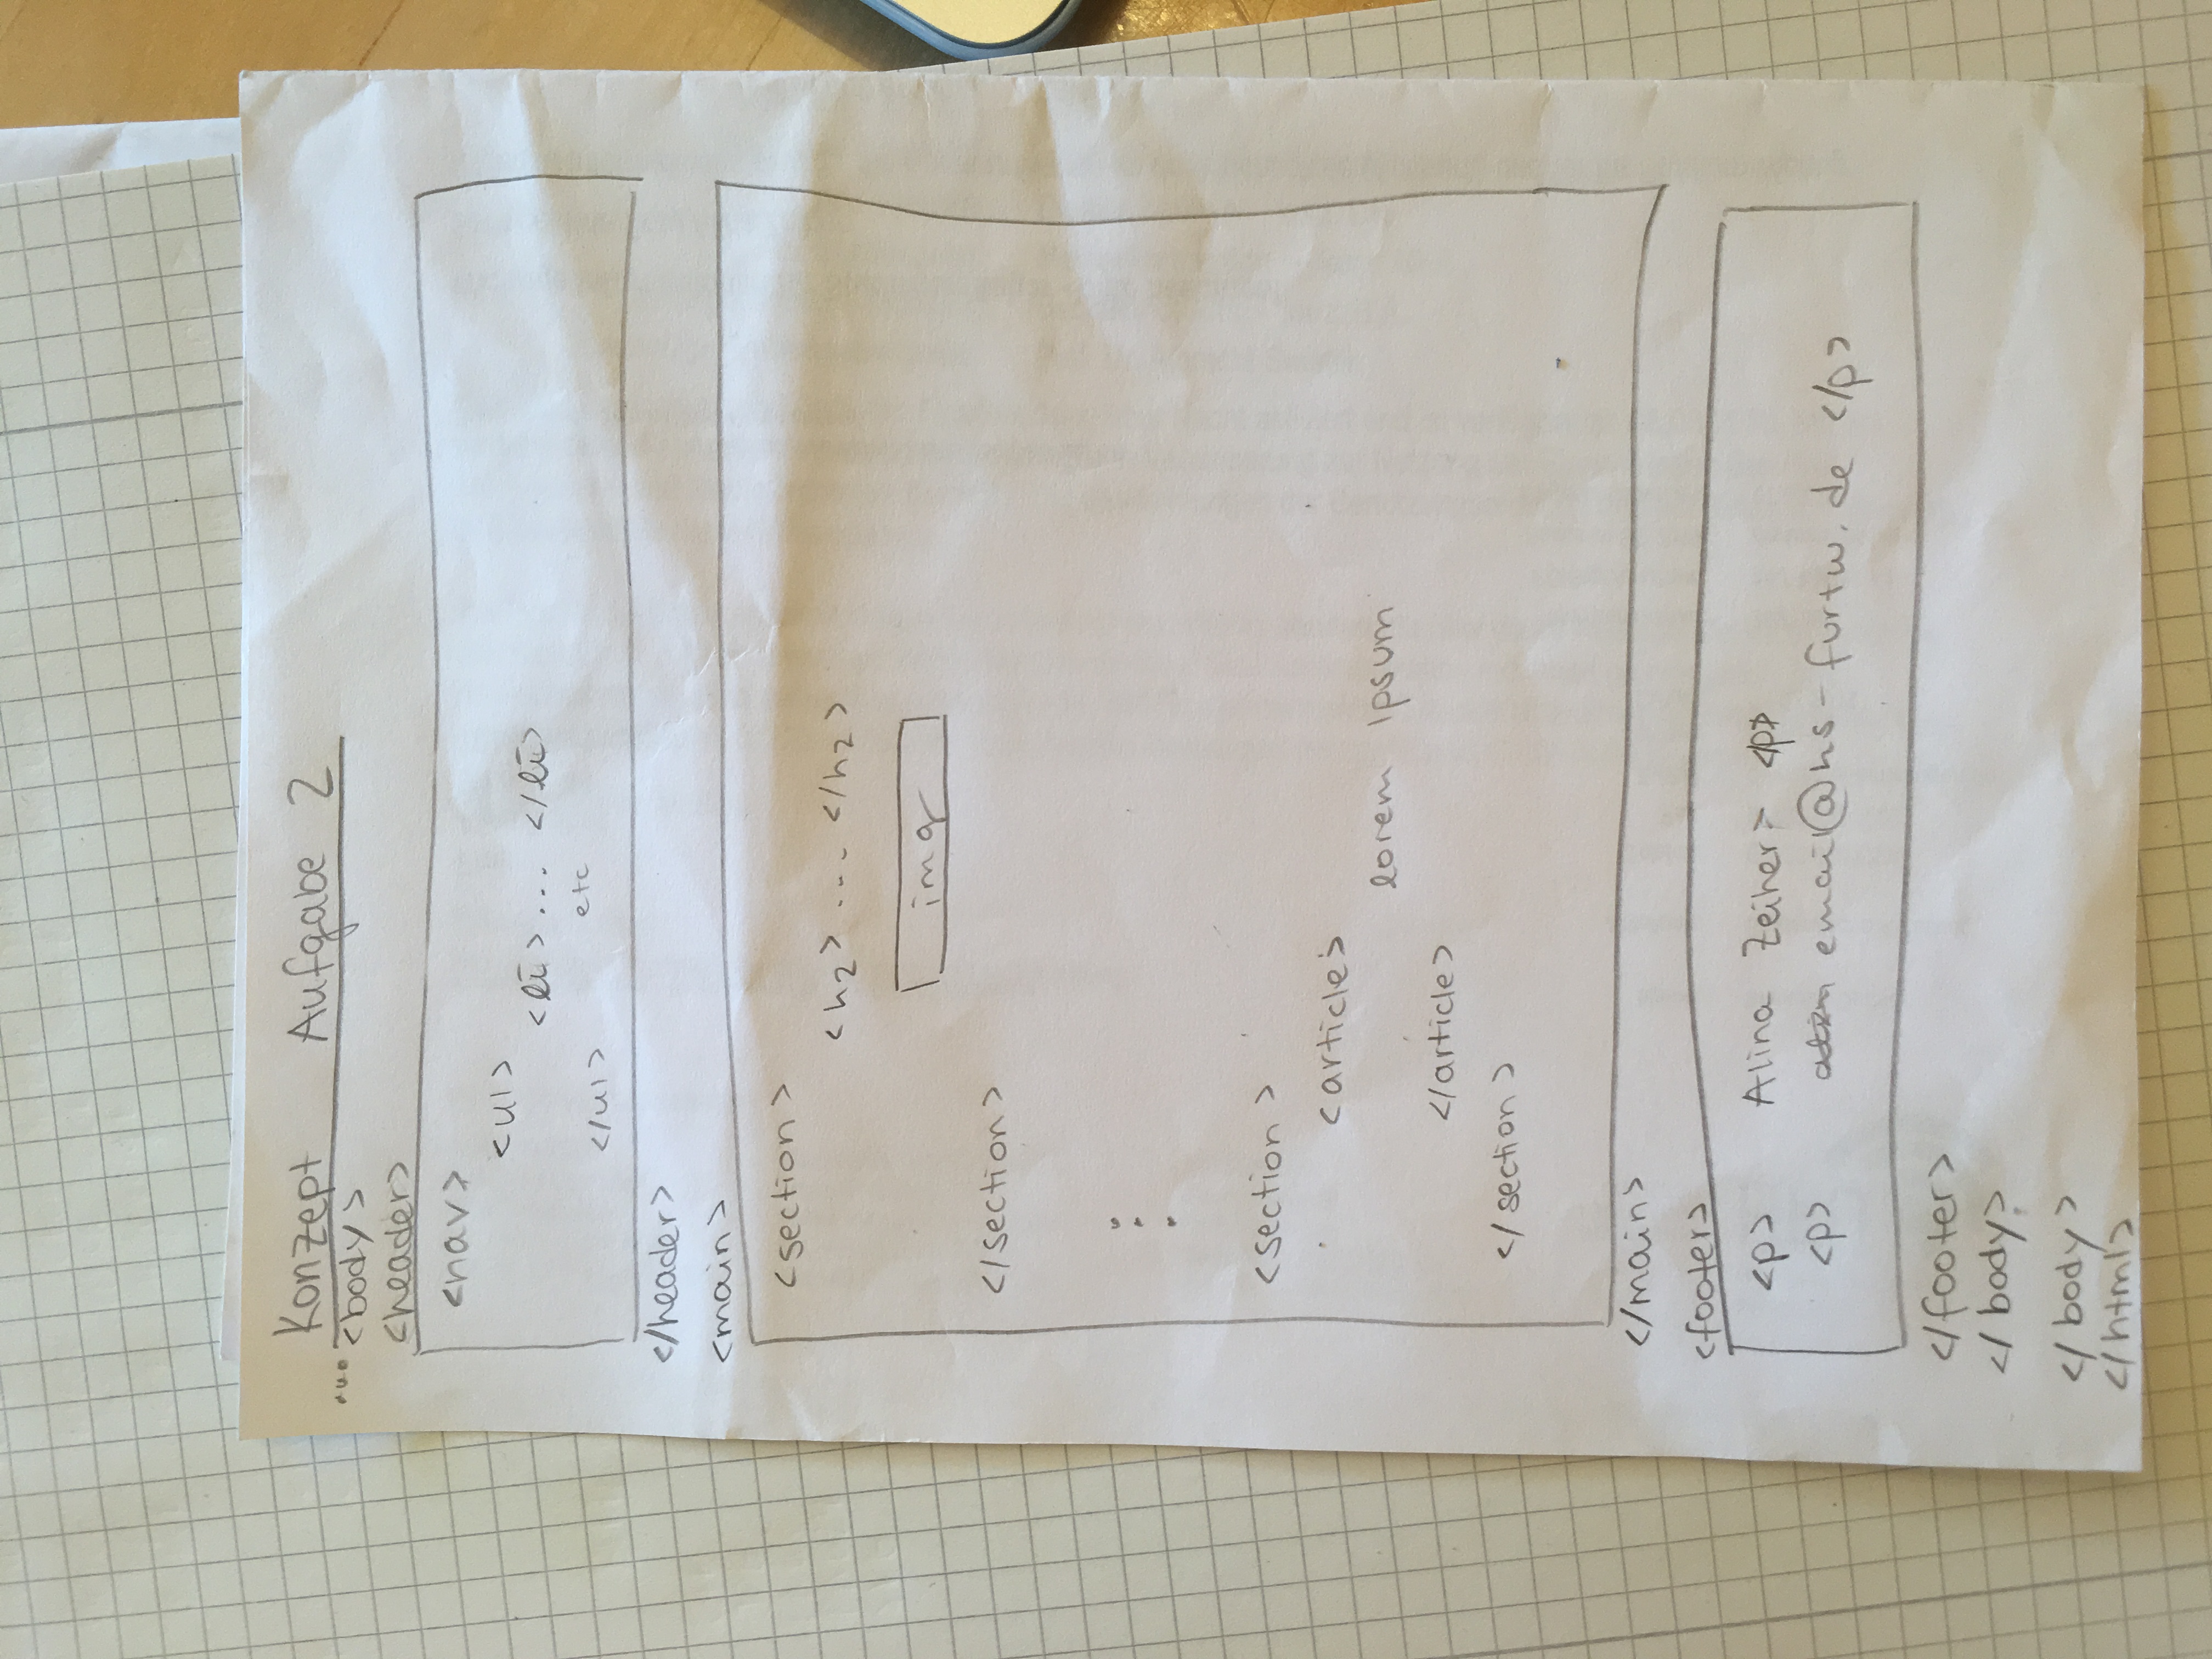 Konzept Aufgabe 2
... <body>
<header>
<nav>
<ul>
<li> ... </li>
etc
</ul>
</header>
<main>
<section>
<h2> ... </h2>
img
</section>
<section>
<article>
lorem ipsum
</article>
</section>
</main>
<footer>
<p> Alina Zeiher> </p>
<p> email@hs-furtw.de </p>
</footer>
</body>
</body>
</html>